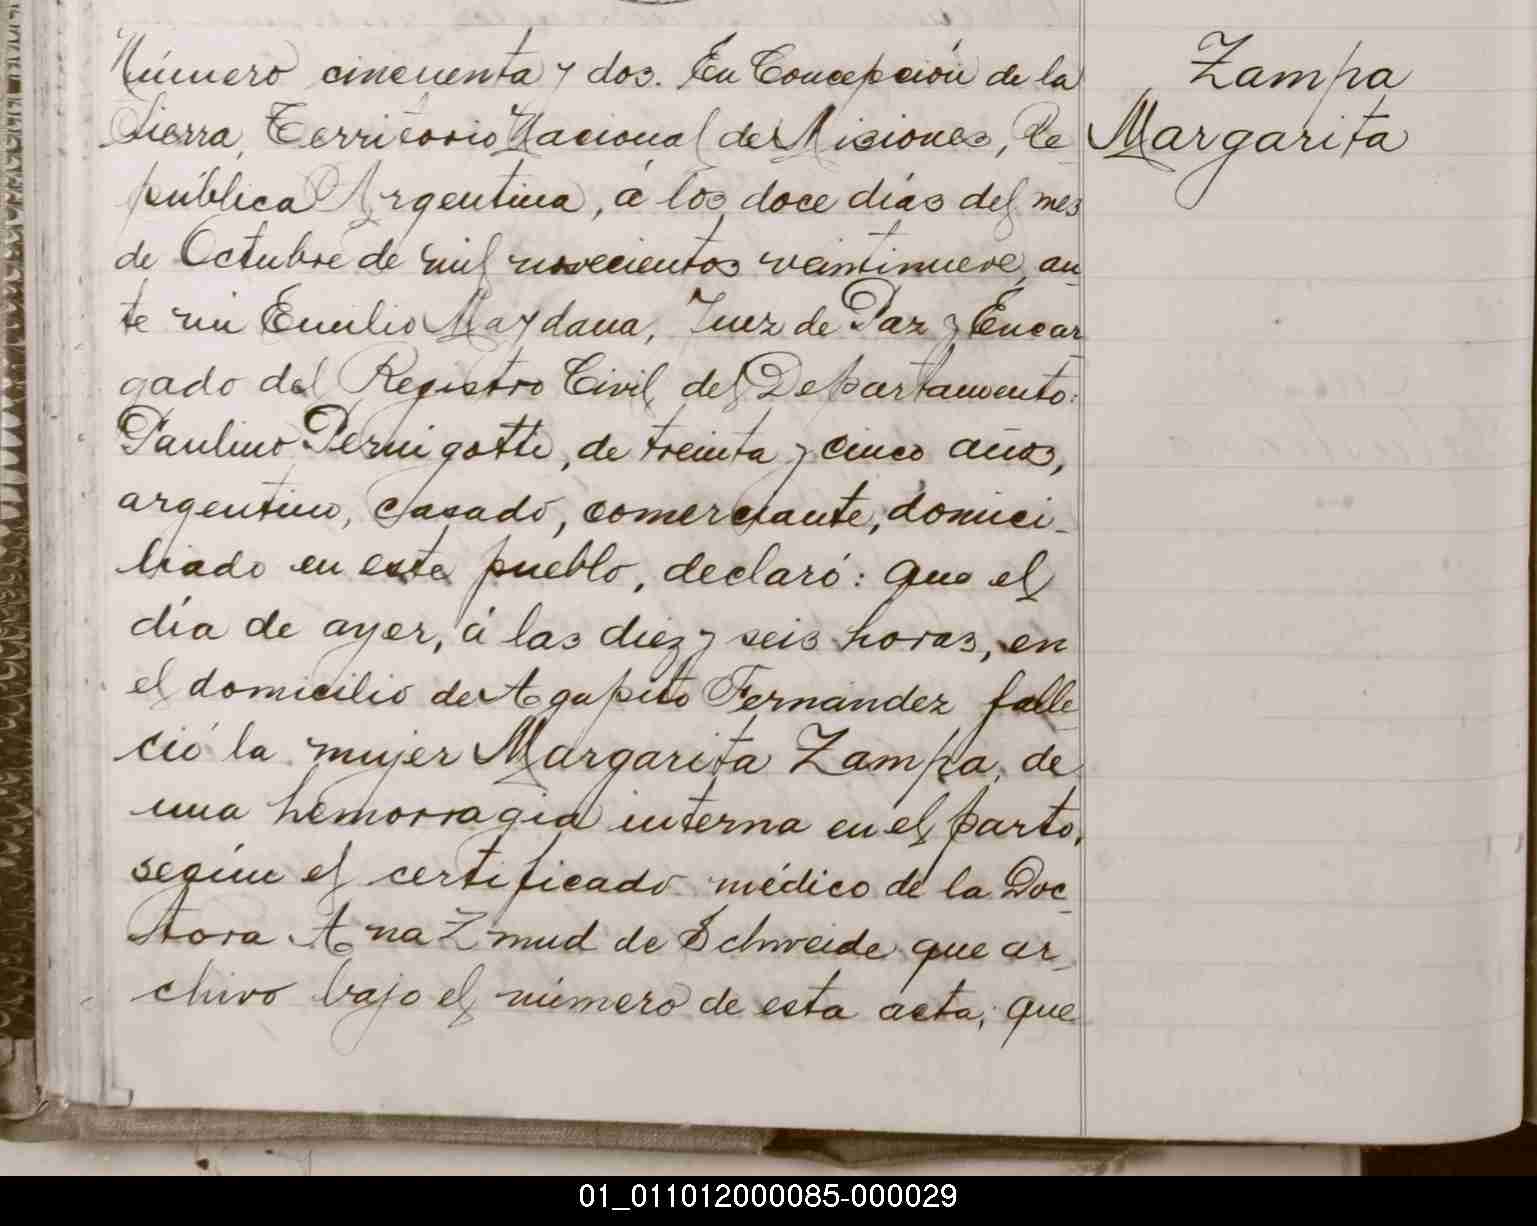 Número cincuenta y dos. En Concepción de la
Sierra, Territorio Nacional de Misiones, Re
pública Argentina, á los doce días del mes
de Octubre de mil novecientos veintinueve, an
te mi Emilio Maydana, Juez de Paz y Encar
gado del Registro Civil del Departamento:
Paulino Pernigotti, de treinta y cinco años,
argentino, casado, comerciante, domici-
liado en este pueblo, declaró: que el
día de ayer, á las diez y seis horas, en
el domicilio de Agapito Fernández falle
ció la mujer Margarita Zampa, de
una hemorragia interna en el parto,
según el certificado médico de la Doc-
tora Ana Zmud de Schweide que ar-
chivo bajo el número de esta acta; que
Zampa
Margarita
01_011012000085-000029